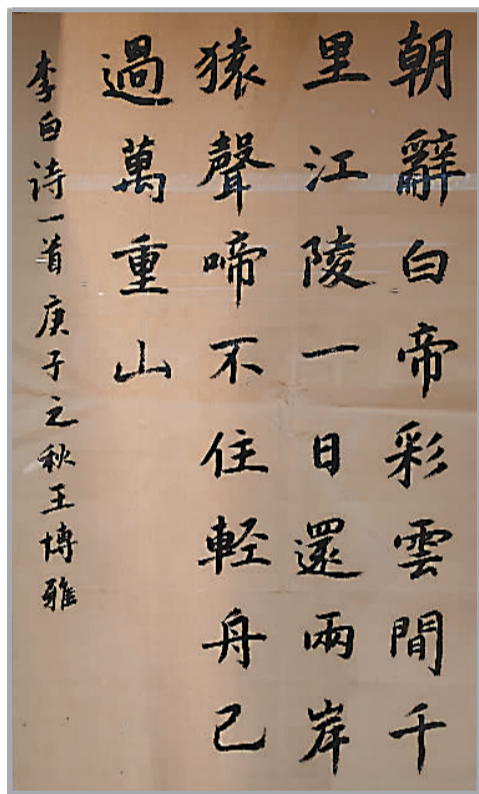 朝辭白帝彩雲間千
里江陵一日還兩岸
猿聲啼不住輕舟已
過萬重山
李白诗一首庚子之秋王博雅